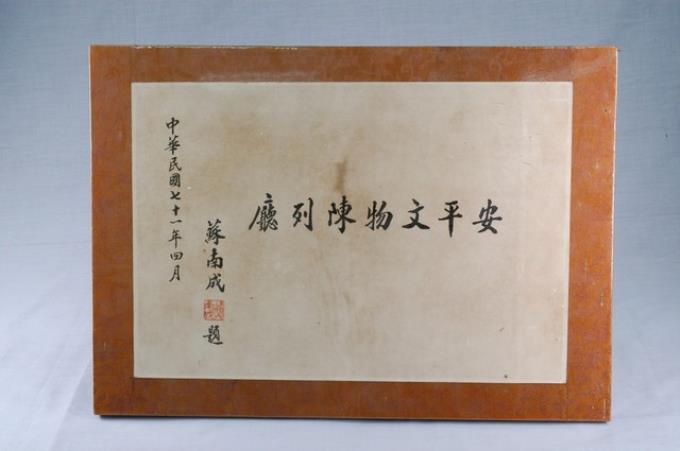 安平文物陳列廳
蘇南成
題
中華民國七十一年四月